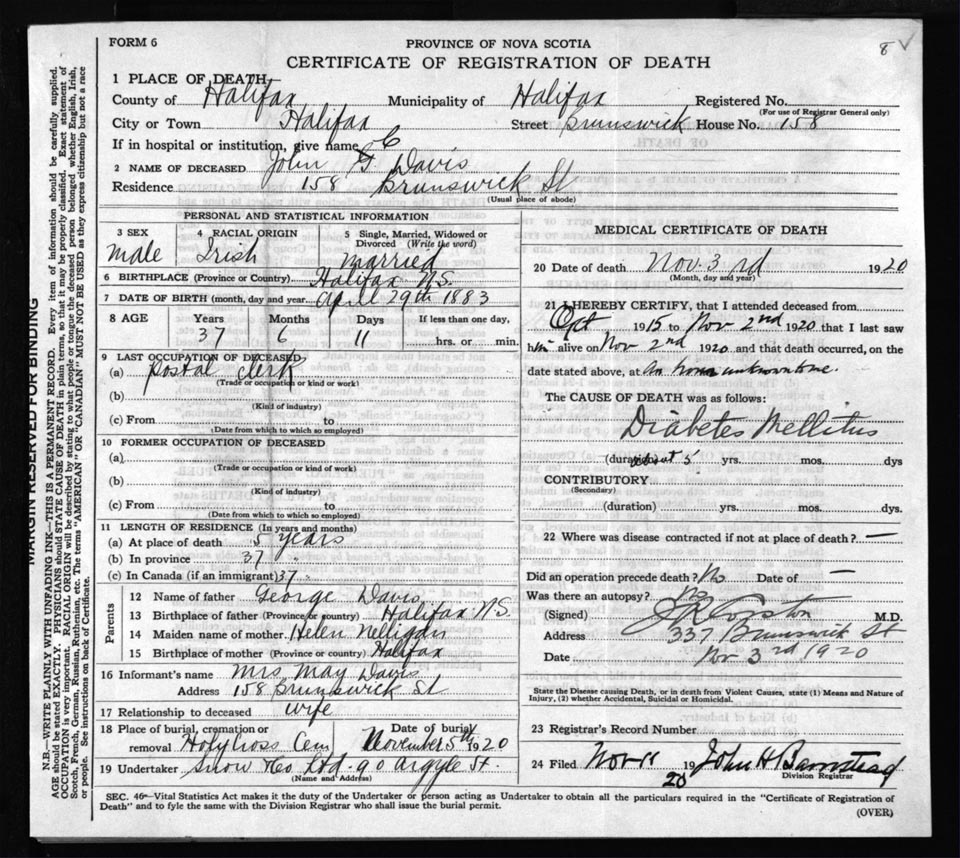 FORM 6
8 ✓
PROVINCE OF NOVA SCOTIA
CERTIFICATE OF REGISTRATION OF DEATH
1 PLACE OF DEATH,
County of Halifax Municipality of Halifax Registered No.
(For use of Registrar General only)
City or Town Halifax Street Brunswick House No. 158
If in hospital or institution, give name
2 NAME OF DECEASED John C Davis
Residence 158 Brunswick St
(Usual place of abode)
PERSONAL AND STATISTICAL INFORMATION
3 SEX 4 RACIAL ORIGIN 5 Single, Married, Widowed or Divorced (Write the word)
Male Irish Married
6 BIRTHPLACE (Province or Country) Halifax N.S.
7 DATE OF BIRTH (month, day and year) April 29th 1883
8 AGE Years Months Days If less than one day,
37 6 11 hrs. or min.
9 LAST OCCUPATION OF DECEASED
(a) Postal Clerk
(Trade or occupation or kind or work)
(b)
(Kind of industry)
(c) From to
(Date from which to which so employed)
10 FORMER OCCUPATION OF DECEASED
(a)
(Trade or occupation or kind of work)
(b)
(Kind of industry)
(c) From to
(Date from which to which so employed)
11 LENGTH OF RESIDENCE (In years and months)
(a) At place of death 5 years
(b) In province 37 "
(c) In Canada (if an immigrant) 37 "
Parents
12 Name of father George Davis
13 Birthplace of father (Province or country) Halifax N.S.
14 Maiden name of mother Helen Nelligan
15 Birthplace of mother (Province or country) Halifax
16 Informant's name Mrs May Davis
Address 158 Brunswick St
17 Relationship to deceased wife
18 Place of burial, cremation or Date of burial
removal Holy Cross Cem November 5th 1920
19 Undertaker Snow & Co Ltd. 90 Argyle St.
(Name and Address)
MEDICAL CERTIFICATE OF DEATH
20 Date of death Nov. 3rd 1920
(Month, day and year)
21 I HEREBY CERTIFY, that I attended deceased from
1915 to Nov 2nd 1920 that I last saw
him alive on Nov 2nd 1920 and that death occurred, on the
date stated above, at An hour unknown to me.
The CAUSE OF DEATH was as follows:
Diabetes Mellitus
(duration) about 5 yrs. mos. dys
CONTRIBUTORY
(Secondary)
(duration) yrs. mos. dys.
22 Where was disease contracted if not at place of death? —
Did an operation precede death? No Date of —
Was there an autopsy? No
(Signed) M.D.
Address 337 Brunswick St
Date Nov 3rd 1920
State the Disease causing Death, or in death from Violent Causes, state (1) Means and Nature of
Injury, (2) whether Accidental, Suicidal or Homicidal.
23 Registrar's Record Number
24 Filed Nov 19 20 John H Barnstead
Division Registrar
SEC. 46—Vital Statistics Act makes it the duty of the Undertaker or person acting as Undertaker to obtain all the particulars required in the "Certificate of Registration of
Death" and to fyle the same with the Division Registrar who shall issue the burial permit.
(OVER)
MARGIN RESERVED FOR BINDING
N.B.—WRITE PLAINLY WITH UNFADING INK—THIS IS A PERMANENT RECORD. Every item of information should be carefully supplied.
AGE should be stated EXACTLY. PHYSICIANS should STATE CAUSE OF DEATH in plain terms, so that it may be properly classified. Exact statement of
OCCUPATION is very important. RACIAL ORIGIN will be described by stating to what people or tongue the deceased person belonged, whether English, Irish,
Scotch, French, German, Russian, Ruthenian, etc. The terms "AMERICAN" OR "CANADIAN" MUST NOT BE USED as they express citizenship but not a race
or people. See instructions on back of Certificate.